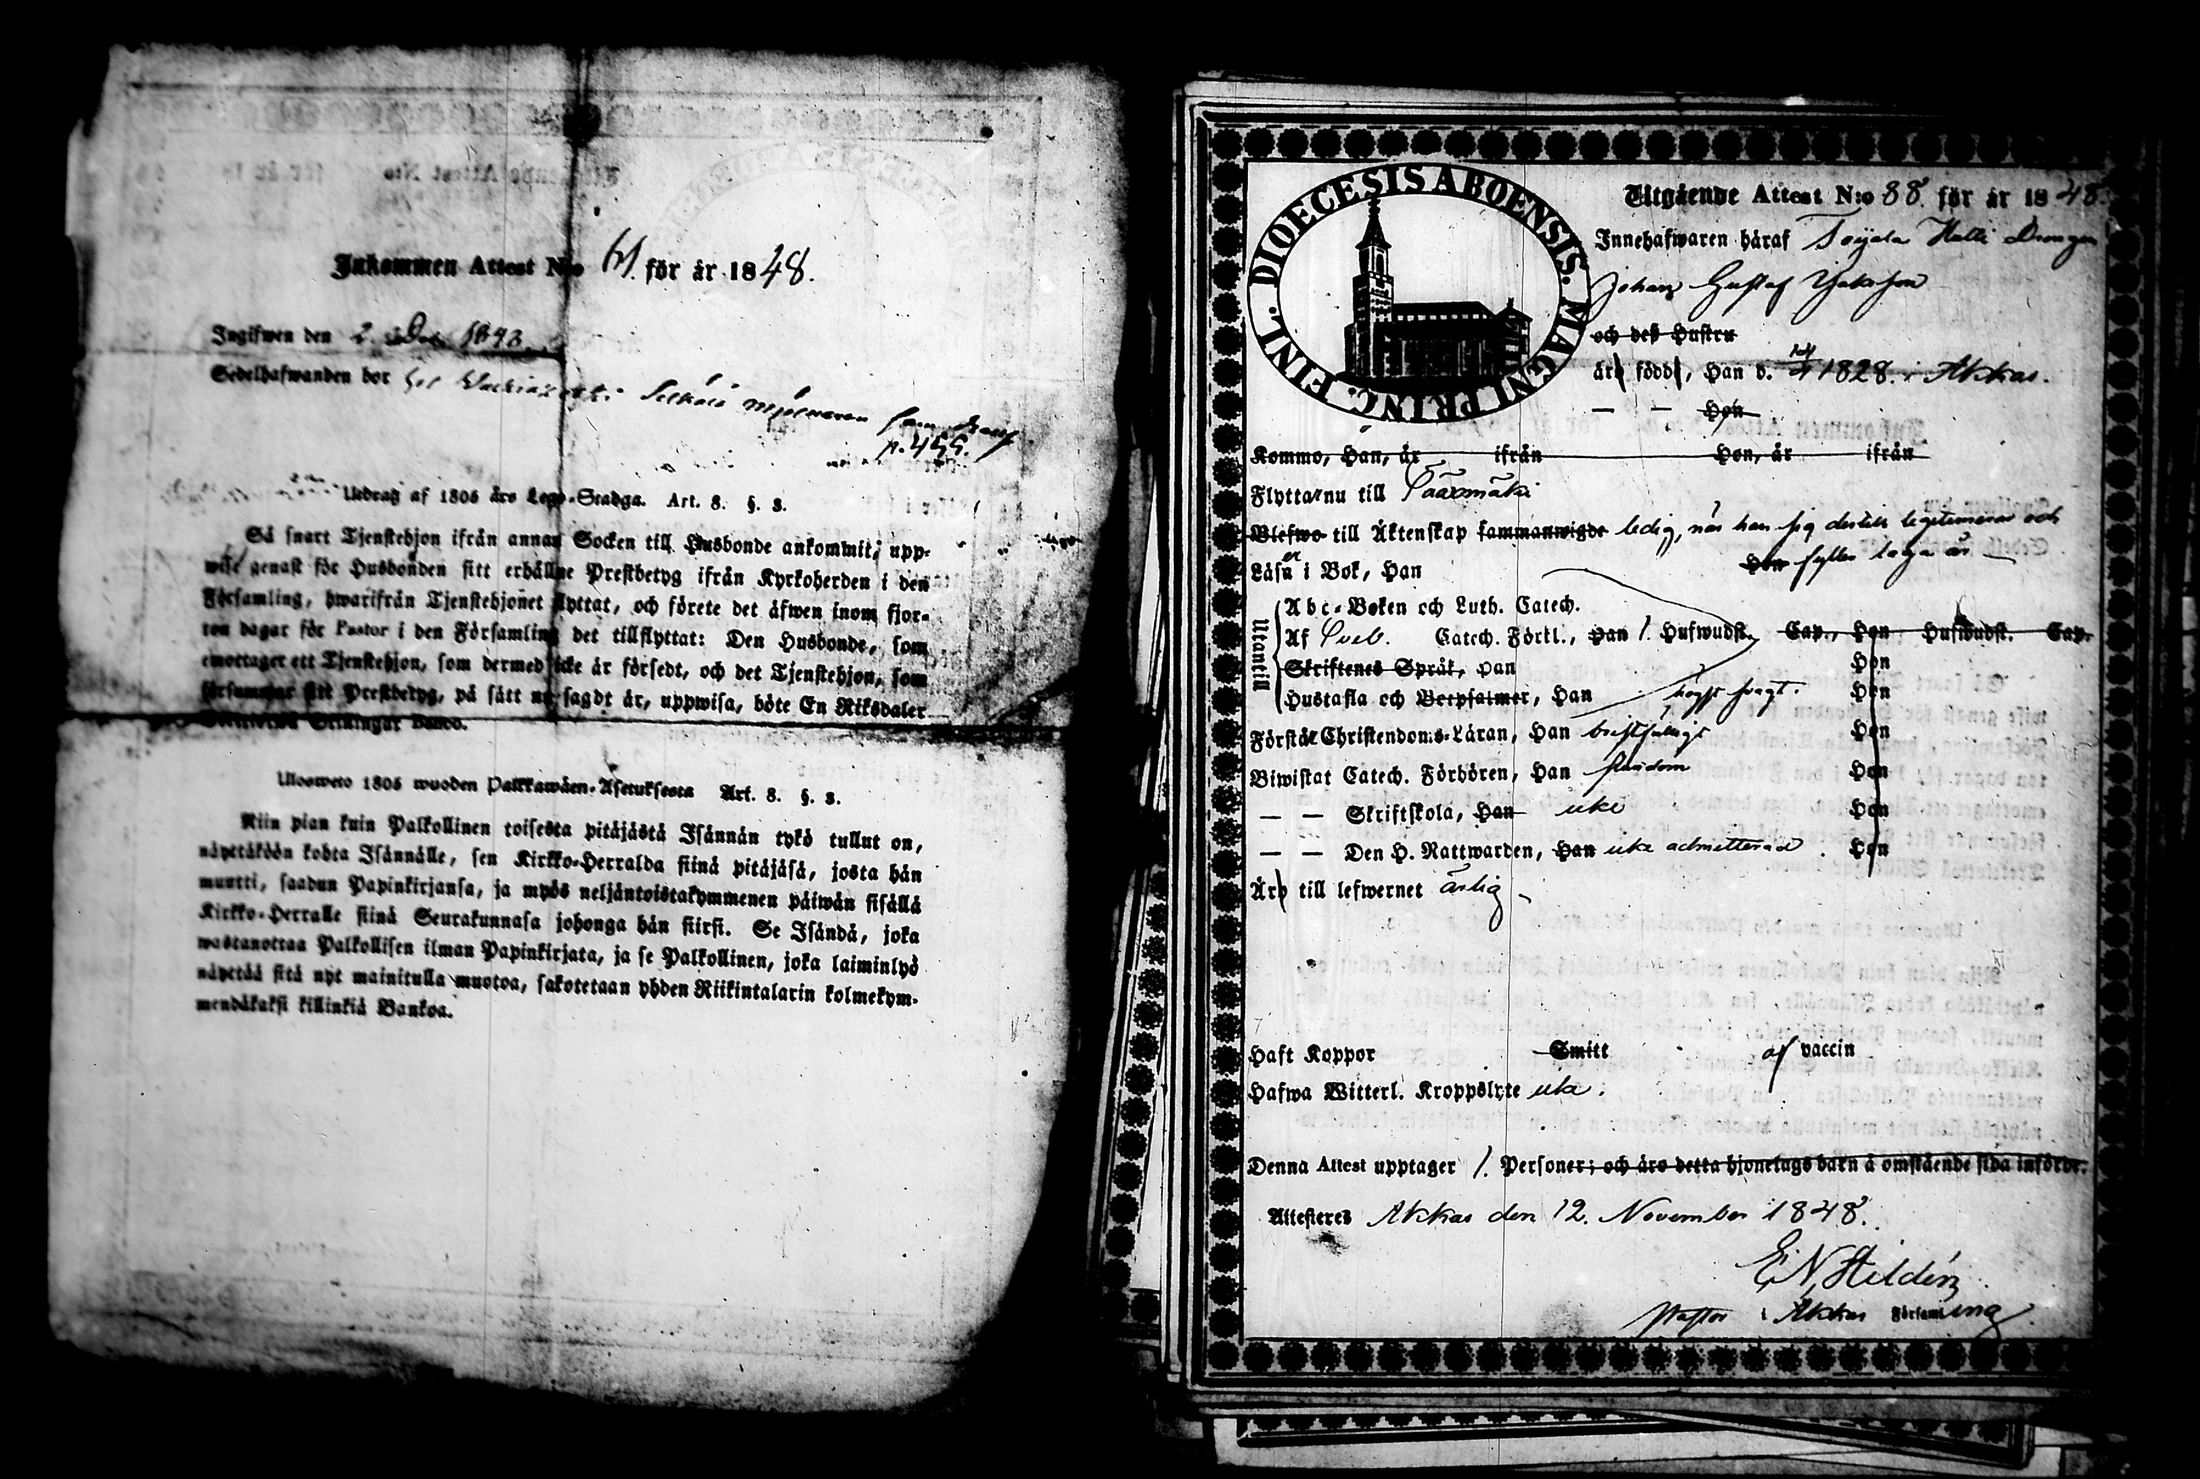 Inkommen Attest N:o 61. för år 1848.
Ingifwen den 2. 1848.
Sedelhafwanden bor
p. 455.
Utdrag af 1805 års Lego-Stadga. Art. 8. §. 3.
Så snart Tjenstehjon ifrån annan Socken till Husbonde ankommit, upp-
wise genast för Husbonden sitt erhållne Prestbetyg ifrån Kyrkoherden i den
Församling, hwarifrån Tjenstehjonet flyttat, och förete det äfwen inom fjor-
ton dagar för Pastor i den Församling det tillflyttat: Den Husbonde, som
emottager ett Tjenstehjon, som dermed icke är försedt, och det Tjenstehjon, som
försummar sitt Prestbetyg, på sätt nu sagdt är, uppwisa, böte En Riksdaler
Skillingar Banco.
Ulosweto 1805 wuoden Palkkawäen-Asetuksesta Art. 8. §. 3.
Niin pian kuin Palkollinen toisesta pitäjästä Isännän tykö tullut on,
näyttäköön kohta Isännälle, sen Kirkko-Herralda siinä pitäjäsä, josta hän
muutti, saadun Papinkirjansa, ja myös neljäntoistakymmenen päiwän sisällä
Kirkko-Herralle siinä Seurakunnasa johonga hän siirsi. Se Isändä, joka
wastanottaa Palkollisen ilman Papinkirjata, ja se Palkollinen, joka laiminlyö
näyttää sitä nyt mainitulla muotoa, sakotetaan yhden Riikintalarin kolmekym-
mendäkaksi killinkiä Bankoa.
DIOECESIS ABOENSIS. MAGNI PRINC. FINL.
Utgående Attest N:o 88. för år 1848.
Innehafwaren häraf Toijala Halli Drengen
Johan Gustaf
och deß Hustru
äro födde, Han d. 1828. i Akkas.
— — Hon
Kommo, Han, år ifrån Hon, år ifrån
Flytta nu till Sääxmäki
Blefwo till Äktenskap sammanwigde ledig, när han sig dertill legitimerar och
Hon fyller laga år —
Läser i Bok, Han
Utantill
Abc-Boken och Luth. Catech.
Af Sveb. Catech. Förkl., Han 1. Hufwudst. Cap., Hon Hufwudst. Cap.
Skriftenes Språk, Han Hon
Hustafla och Botpsalmer, Han högst swagt. Hon
Förstår Christendoms-Läran, Han bristfälligt Hon
Biwistat Catech. Förhören, Han Hon
— — Skriftskola, Han icke Hon
— — Den H. Nattwarden, Han icke admitterad. Hon
Äro till lefwernet ärlig —
Haft Koppor Smitt af vaccin
Hafwa Witterl. Kroppslyte icke.
Denna Attest upptager 1. Personer; och äro detta hjonelags barn å omstående sida införde.
Attesteres Akkas den 12. November 1848.
E. N. Hildén
Pastor i Akkas Församling